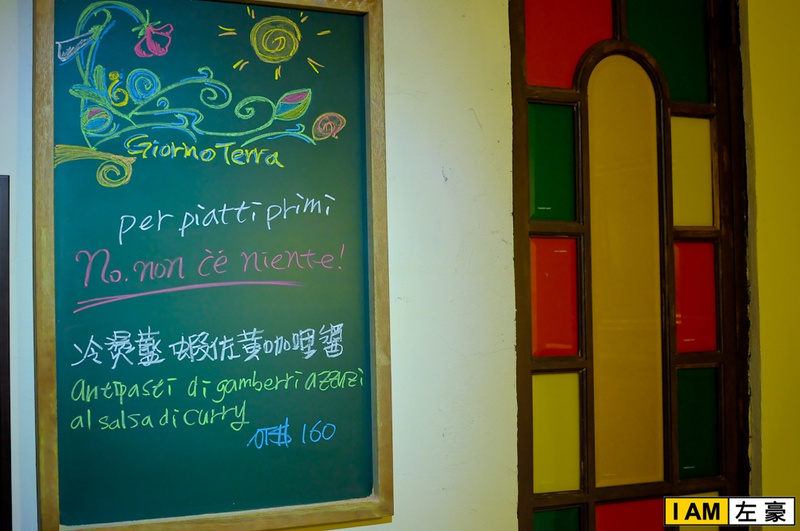 Giorno Terra
per piatti primi
No. non c'è niente!
冷燙藍蝦佐黃咖哩醬
antipasti di gamberri azzuzi
al salsa di curry
NT$ 160
I AM 左豪